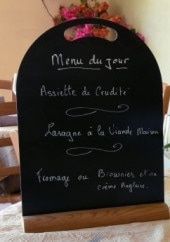 Menu du jour
Assiette de Crudité
Lasagne à la Viande Maison
Fromage ou Brownies et sa
crème Anglaise.